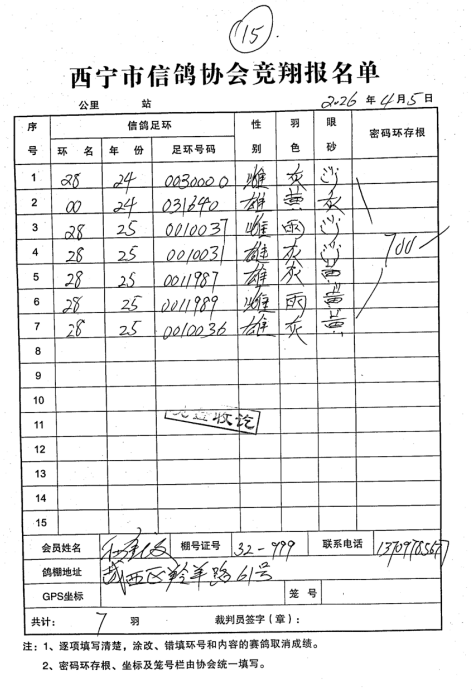 15
西宁市信鸽协会竞翔报名单
公里 站 2026 年 4 月 5 日
序号 信鸽足环 性别 羽色 眼砂 密码环存根
环名 年份 足环号码
1 28 24 0030000 雌 灰 沙
2 00 24 031640 雄 黄 灰
3 28 25 0010037 雌 雨 沙
4 28 25 0010031 雄 灰 沙 700
5 28 25 0011987 雄 灰 黄
6 28 25 0011989 雌 雨 黄
7 28 25 0010036 雄 灰 黄
8
9
10
11 收讫
12
13
14
15
会员姓名 棚号证号 32-999 联系电话
鸽棚地址 城西区羚羊路61号
GPS坐标 笼号
共计: 7 羽 裁判员签字(章):
注:1、逐项填写清楚,涂改、错填环号和内容的赛鸽取消成绩。
2、密码环存根、坐标及笼号栏由协会统一填写。